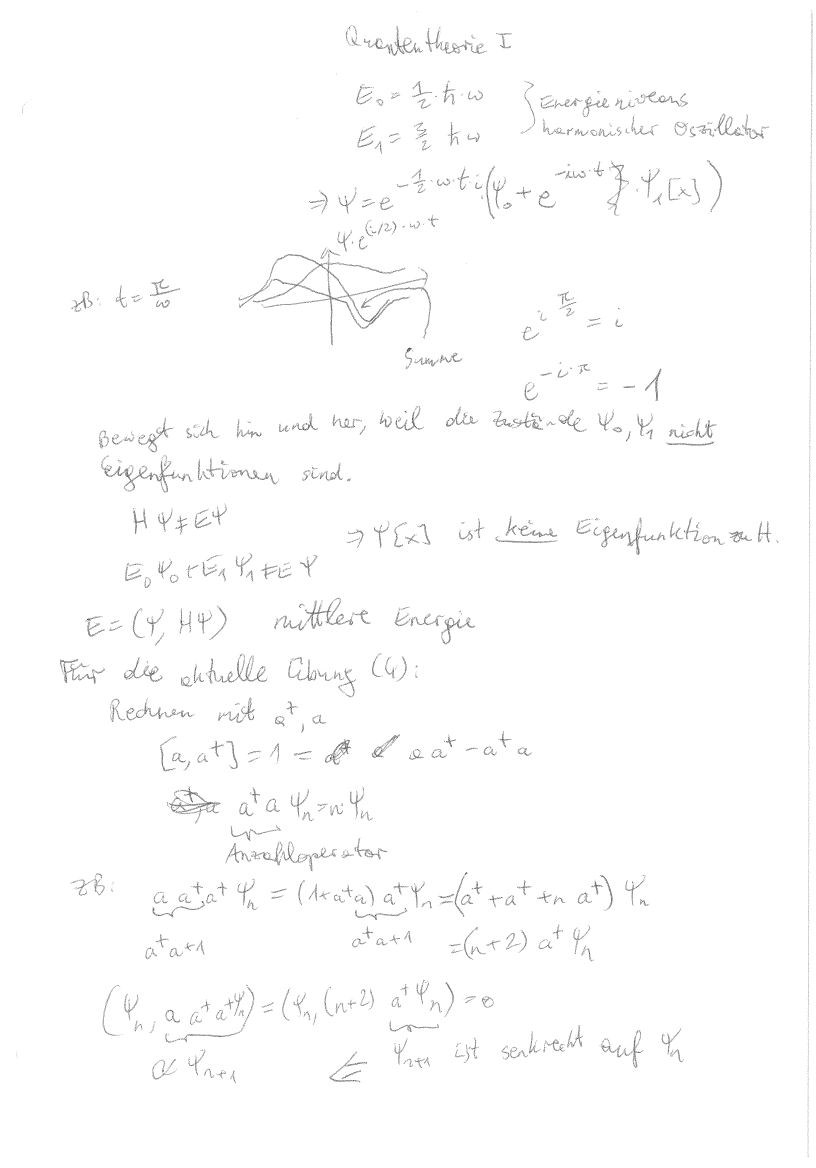 Quantentheorie I
E₀ = 1/2 · ħ · ω } Energieniveaus
E₁ = 3/2 ħ ω harmonischer Oszillator
⇒ Ψ = e^(-1/2·ω·t·i) (Ψ₀ + e^(-iω·t) · Ψ₁[x])
Ψ·e^((i/2)·ω·t)
zB: t = π/ω
Summe
e^(i π/2) = i
e^(-i·π) = -1
Bewegt sich hin und her, weil die Zustände Ψ₀, Ψ₁ nicht
Eigenfunktionen sind.
H Ψ ≠ E Ψ
⇒ Ψ[x] ist keine Eigenfunktion zu H.
E₀ Ψ₀ + E₁ Ψ₁ ≠ E Ψ
E = (Ψ, HΨ) mittlere Energie
Für die aktuelle Übung (4):
Rechnen mit a⁺, a
[a, a⁺] = 1 = a a⁺ - a⁺ a
a⁺ a Ψₙ = n Ψₙ
Anzahloperator
zB: a a⁺ a⁺ Ψₙ = (1 + a⁺a) a⁺ Ψₙ = (a⁺ + a⁺ + n a⁺) Ψₙ
a⁺a+1 a⁺a+1 = (n+2) a⁺ Ψₙ
(Ψₙ, a a⁺ a⁺Ψₙ) = (Ψₙ, (n+2) a⁺ Ψₙ) = 0
∝ Ψₙ₊₁ ⇐ Ψₙ₊₁ ist senkrecht auf Ψₙ